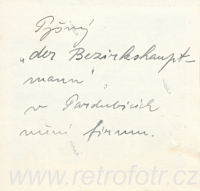 Pyšný
„der Bezirkshaupt-
mann"
v Pardubicích
míní firmu.
www.retrofotr.cz